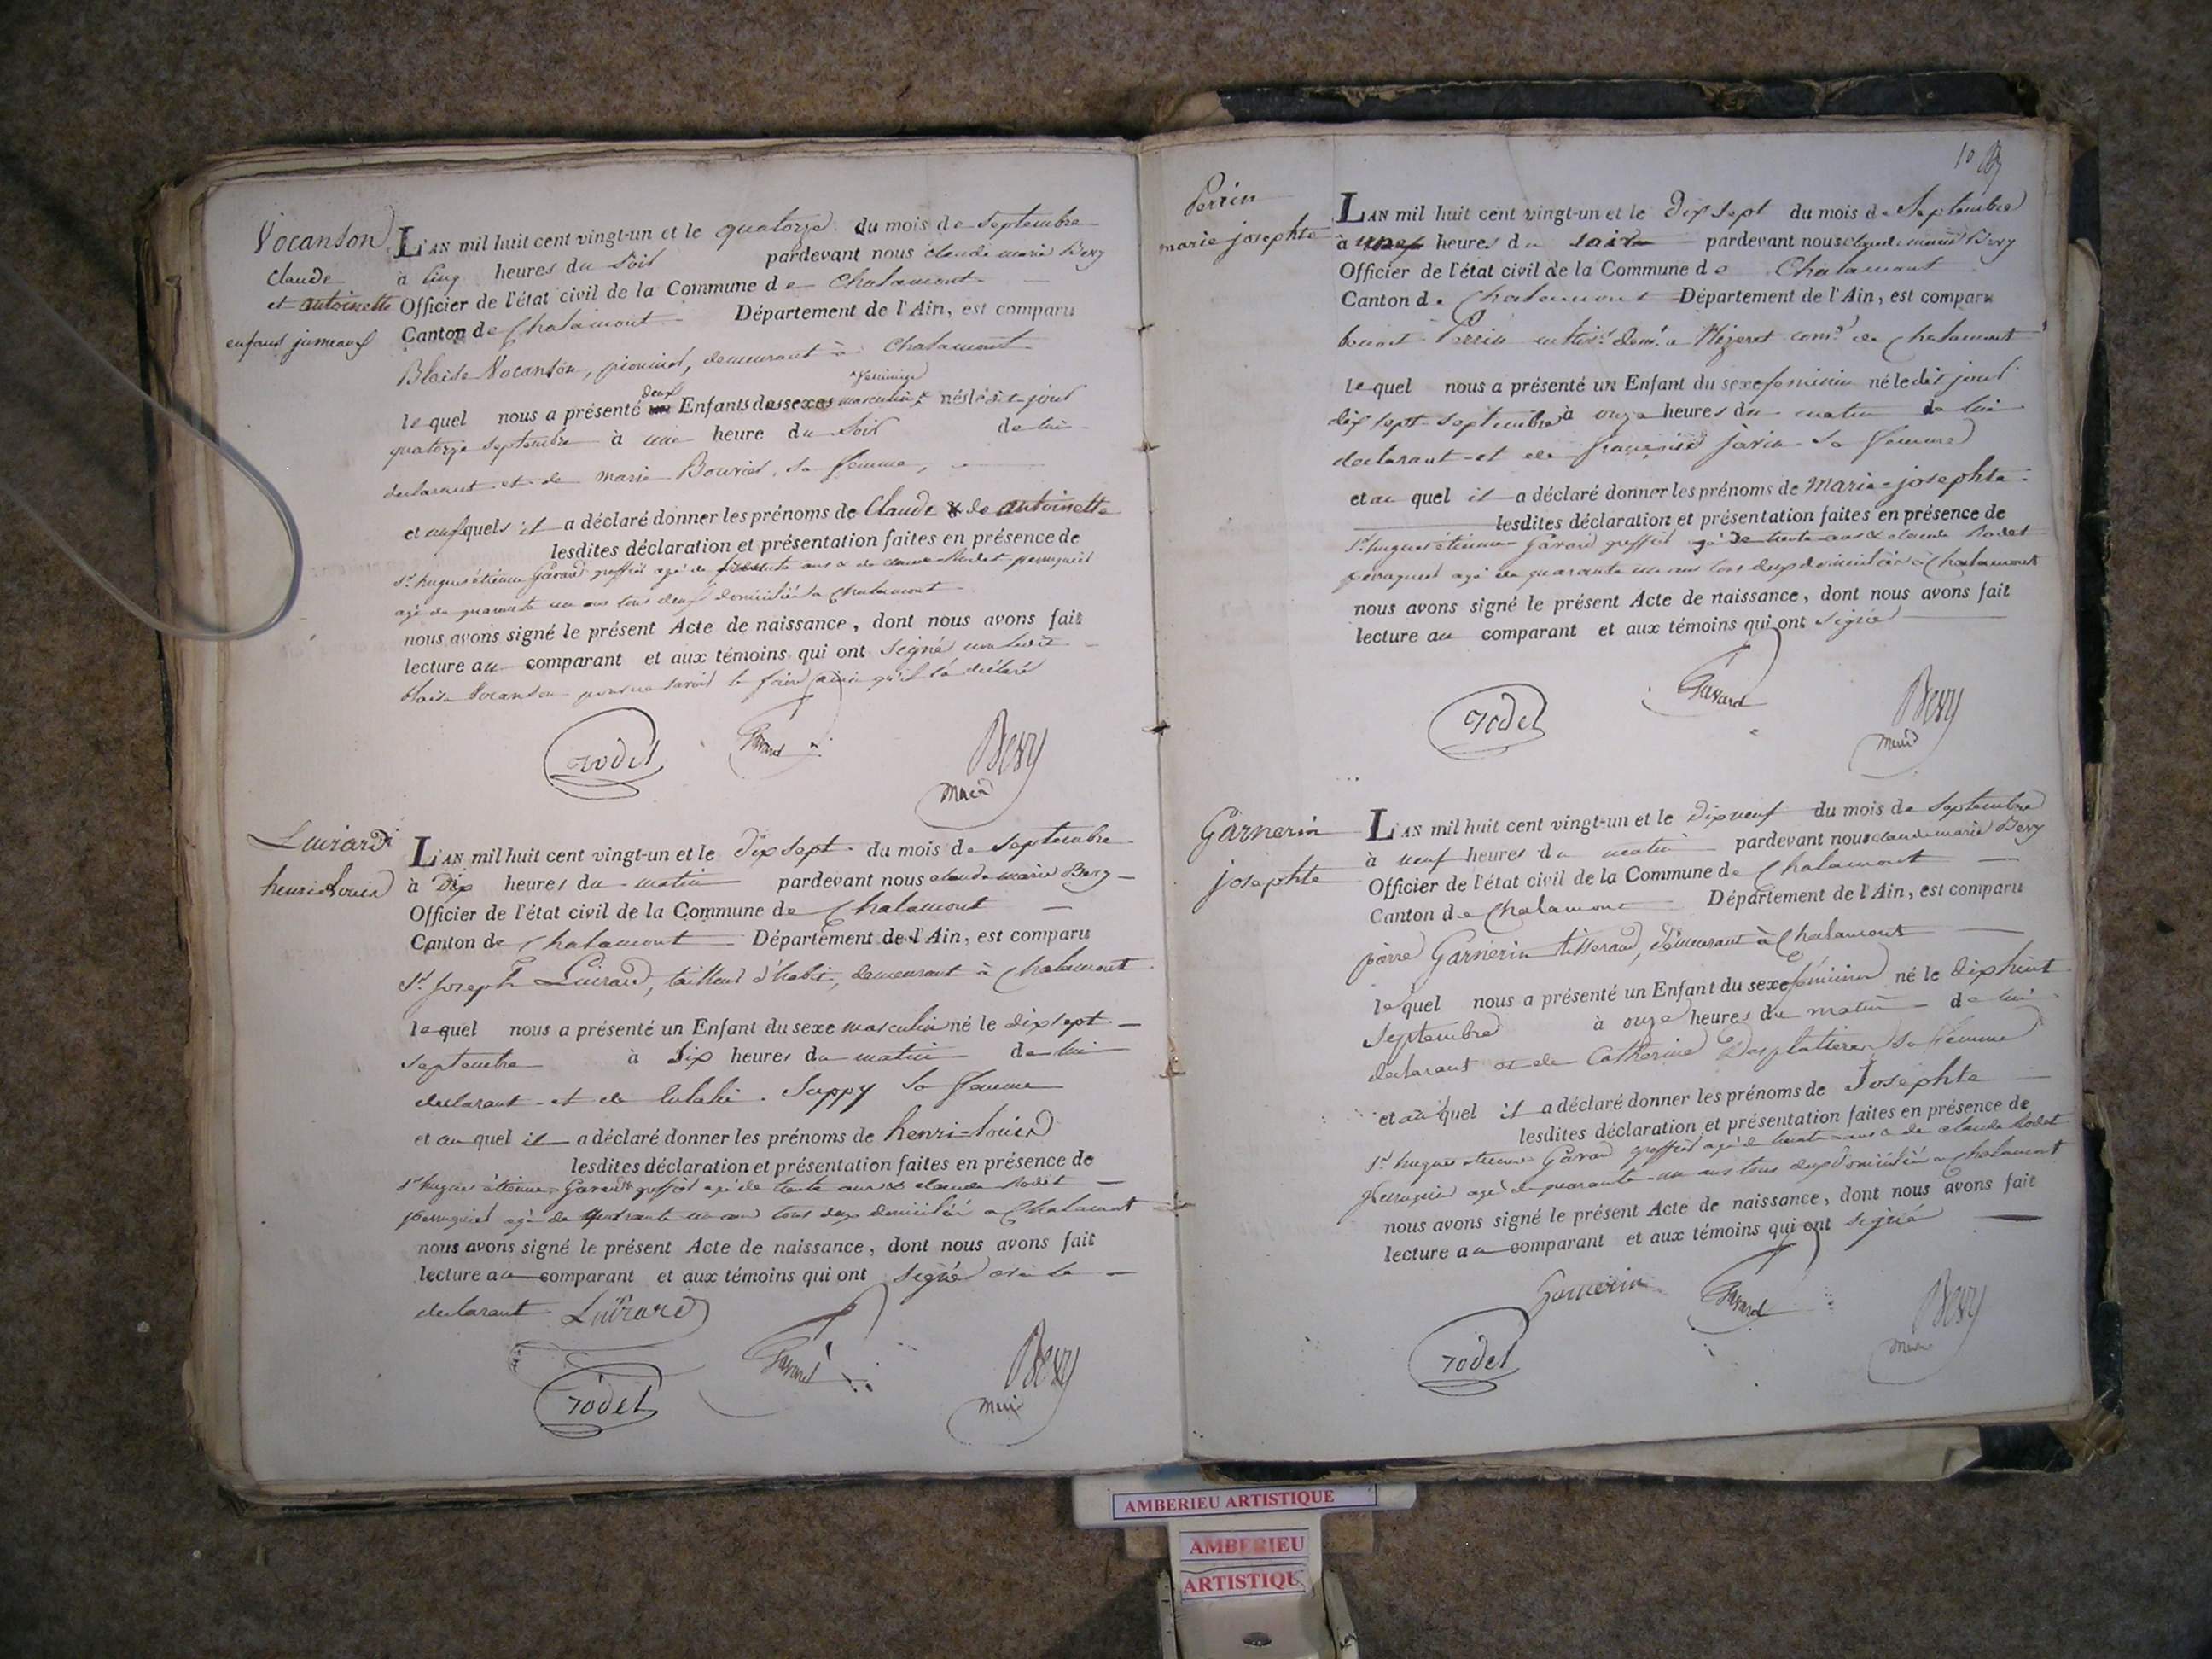 Vocanson
Claude
et antoinette
enfans jumeaux
L'AN mil huit cent vingt-un et le quatorze du mois de Septembre
à cinq heures du Soir pardevant nous claude marie Bevy
Officier de l'état civil de la Commune de Chalamont
Canton de Chalamont Département de l'Ain, est comparu
Blaise Vocanson, demeurant à Chalamont
lequel nous a présenté deux Enfants des sexes masculin & féminin nés le dit jour
quatorze septembre à une heure du Soir de lui
declarant et de marie Bouvier, sa femme,
et auxquels il a déclaré donner les prénoms de Claude & de antoinette
lesdites déclaration et présentation faites en présence de
Sr hugues étienne Gavard greffier agé de trente ans & de claude Rodet perruquier
agé de quarante un ans tous deux domiciliés a Chalamont
nous avons signé le présent Acte de naissance, dont nous avons fait
lecture au comparant et aux témoins qui ont signé
blaise Vocanson pour ne savoir le faire ainsi qu'il l'a déclaré
rodet Gavard Bevy
maire
Luirard
henri Louis
L'AN mil huit cent vingt-un et le dix sept du mois de Septembre
à Dix heures du matin pardevant nous claude marie Bevy
Officier de l'état civil de la Commune de Chalamont
Canton de Chalamont Département de l'Ain, est comparu
Sr Joseph Luirard, tailleur d'habit, demeurant à Chalamont
lequel nous a présenté un Enfant du sexe masculin né le dix sept
septembre à dix heures du matin de lui
declarant et de Eulalie Suppy sa femme
et au quel il a déclaré donner les prénoms de henri-louis
lesdites déclaration et présentation faites en présence de
Sr hugues étienne Gavard greffier agé de trente ans & claude Rodet
perruquier agé de quarante un ans tous deux domiciliés a Chalamont
nous avons signé le présent Acte de naissance, dont nous avons fait
lecture au comparant et aux témoins qui ont signé
declarant Luirard
rodet Gavard Bevy
maire
10
Perrin
marie josephte
L'AN mil huit cent vingt-un et le Dix sept du mois de Septembre
à une heures du soir pardevant nous claude marie Bevy
Officier de l'état civil de la Commune de Chalamont
Canton de Chalamont Département de l'Ain, est comparu
benoit Perrin cultivr demt a comne de Chalamont
lequel nous a présenté un Enfant du sexe feminin né le dit jour
dix sept septembre à onze heures du matin de lui
declarant et de françoise Jarin sa femme
et au quel il a déclaré donner les prénoms de Marie-josephte
lesdites déclaration et présentation faites en présence de
Sr hugues étienne Gavard greffier agé de trente ans & claude Rodet
perruquier agé de quarante un ans tous deux domiciliés à Chalamont
nous avons signé le présent Acte de naissance, dont nous avons fait
lecture au comparant et aux témoins qui ont signé
rodet Gavard Bevy
maire
Garnerin
josephte
L'AN mil huit cent vingt-un et le dix neuf du mois de Septembre
à neuf heures du matin pardevant nous claude marie Bevy
Officier de l'état civil de la Commune de Chalamont
Canton de Chalamont Département de l'Ain, est comparu
pierre Garnerin tisserand, demeurant à Chalamont
lequel nous a présenté un Enfant du sexe féminin né le dix huit
Septembre à onze heures du matin de lui
declarant et de Catherine Desplatieres sa femme
et au quel il a déclaré donner les prénoms de Josephte
lesdites déclaration et présentation faites en présence de
Sr hugues étienne Gavard greffier agé de trente ans & de claude Rodet
perruquier agé de quarante-un ans tous deux domiciliés a Chalamont
nous avons signé le présent Acte de naissance, dont nous avons fait
lecture au comparant et aux témoins qui ont signé
Garnerin Gavard Bevy
rodet maire
AMBERIEU ARTISTIQUE
AMBERIEU
ARTISTIQU